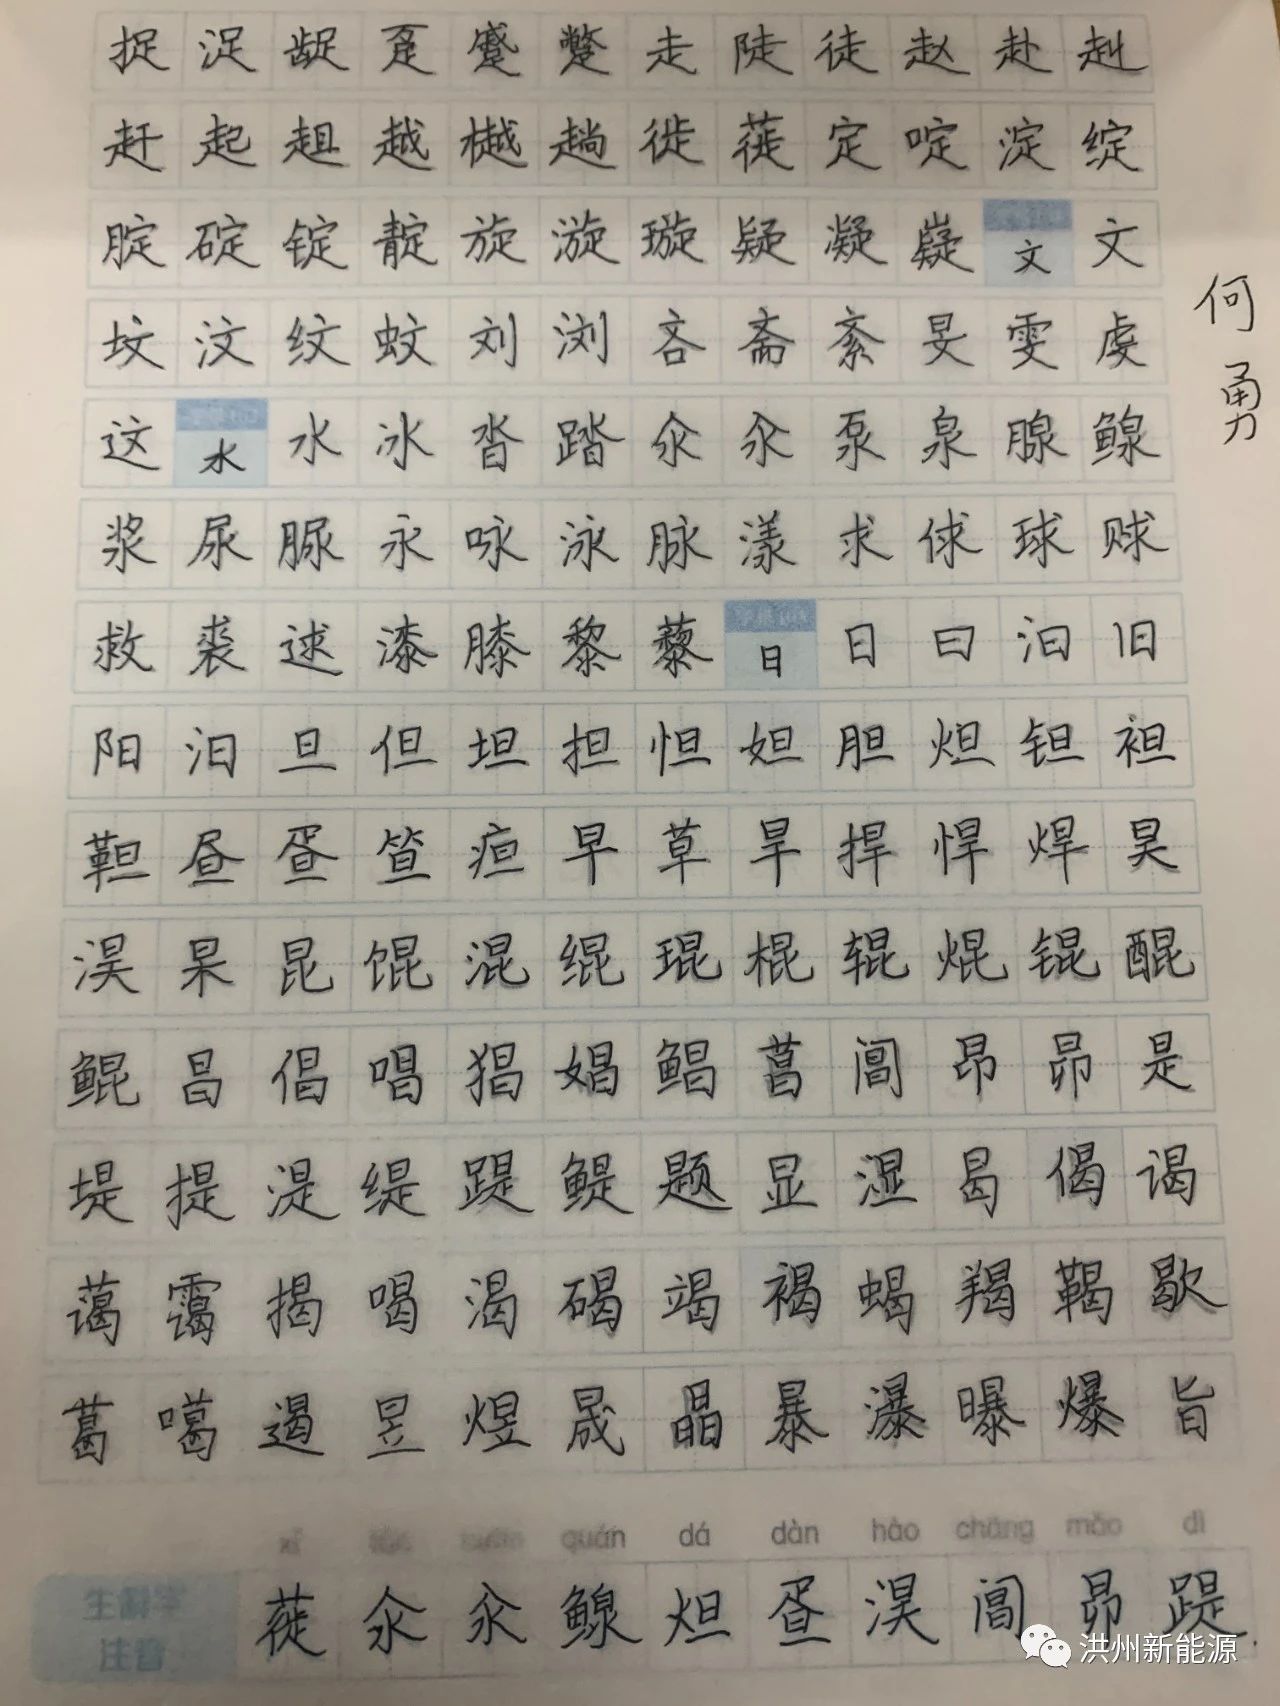 捉 浞 龊 趸 蹙 蹩 走 陡 徒 赵 赴 赳
赶 起 趄 越 樾 趟 徙 蓰 定 啶 淀 绽
腚 碇 锭 靛 旋 漩 璇 疑 凝 嶷 文 文
坟 汶 纹 蚊 刘 浏 吝 斋 紊 旻 雯 虔
这 水 水 冰 沓 踏 汆 氽 泵 泉 腺 鳈
浆 尿 脲 永 咏 泳 脉 漾 求 俅 球 赇
救 裘 逑 漆 膝 黎 藜 日 日 曰 汩 旧
阳 汨 旦 但 坦 担 怛 妲 胆 炟 钽 袒
靼 昼 疍 笪 疸 早 草 旱 捍 悍 焊 昊
淏 杲 昆 馄 混 绲 琨 棍 辊 焜 锟 醌
鲲 昌 倡 唱 猖 娼 鲳 菖 阊 昂 昴 是
堤 提 湜 缇 踶 鳀 题 显 湿 曷 偈 谒
蔼 霭 揭 喝 渴 碣 竭 褐 蝎 羯 鞨 歇
葛 噶 遏 昱 煜 晟 晶 暴 瀑 曝 爆 旨
何勇
xǐ quán dá dàn hào chāng mǎo dì
生僻字注音 蓰 汆 氽 鳈 炟 疍 淏 阊 昴 踶
洪州新能源